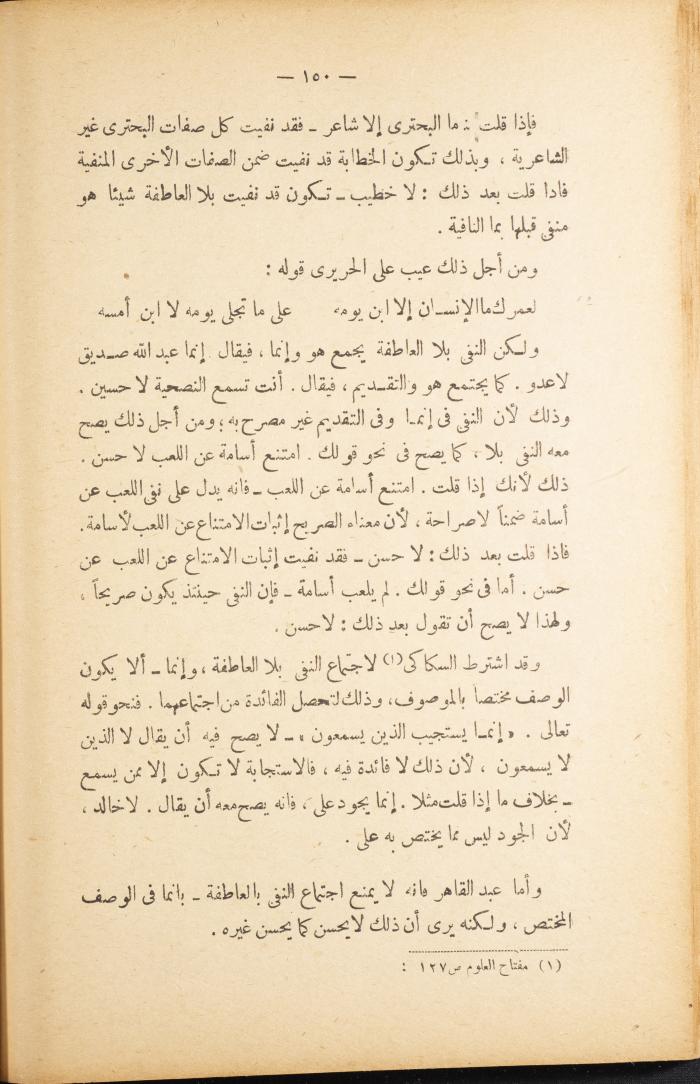 — ١٥٠ —
فإذا قلت : ما البحترى إلا شاعر ـ فقد نفيت كل صفات البحترى غير
الشاعرية ، وبذلك تكون الخطابة قد نفيت ضمن الصفات الأخرى المنفية
فاذا قلت بعد ذلك : لا خطيب ـ تكون قد نفيت بلا العاطفة شيئا هو
منفى قبلها بما النافية .
ومن أجل ذلك عيب على الحريرى قوله :
لعمرك ما الإنسان إلا ابن يومه على ما تجلى يومه لا ابن أمسه
ولكن النفى بلا العاطفة يجمع هو وإنما ، فيقال إنما عبد الله صديق
لاعدو . كما يجتمع هو والتقديم ، فيقال . أنت تسمع النصحية لا حسين .
وذلك لأن النفى فى إنما وفى التقديم غير مصرح به ؛ ومن أجل ذلك يصح
معه النفى بلا ، كما يصح فى نحو قولك . امتنع أسامة عن اللعب لا حسن .
ذلك لأنك إذا قلت . امتنع أسامة عن اللعب ـ فانه يدل على نفى اللعب عن
أسامة ضمناً لاصراحة ، لأن معناه الصريح إثبات الامتناع عن اللعب لأسامة .
فاذا قلت بعد ذلك : لا حسن ـ فقد نفيت إثبات الامتناع عن اللعب عن
حسن . أما فى نحو قولك . لم يلعب أسامة ـ فإن النفى حينئذ يكون صريحاً ،
ولهذا لا يصح أن تقول بعد ذلك : لاحسن .
وقد اشترط السكاكى (١) لاجتماع النفى بلا العاطفة ، وإنما ـ ألا يكون
الوصف مختصاً بالموصوف ، وذلك لتحصل الفائدة من اجتماعهما . فنحو قوله
تعالى . « إنما يستجيب الذين يسمعون » ـ لا يصح فيه أن يقال لا الذين
لا يسمعون ، لأن ذلك لا فائدة فيه ، فالاستجابة لا تكون إلا ممن يسمع
ـ بخلاف ما إذا قلت مثلا . إنما يجود على ، فانه يصح معه أن يقال . لا خالد ،
لأن الجود ليس مما يختص به على .
وأما عبد القاهر فانه لا يمنع اجتماع النفى بالعاطفة ـ بانما فى الوصف
المختص ، ولكنه يرى أن ذلك لايحسن كما يحسن غيره .
(١) مفتاح العلوم ص ١٢٧ :